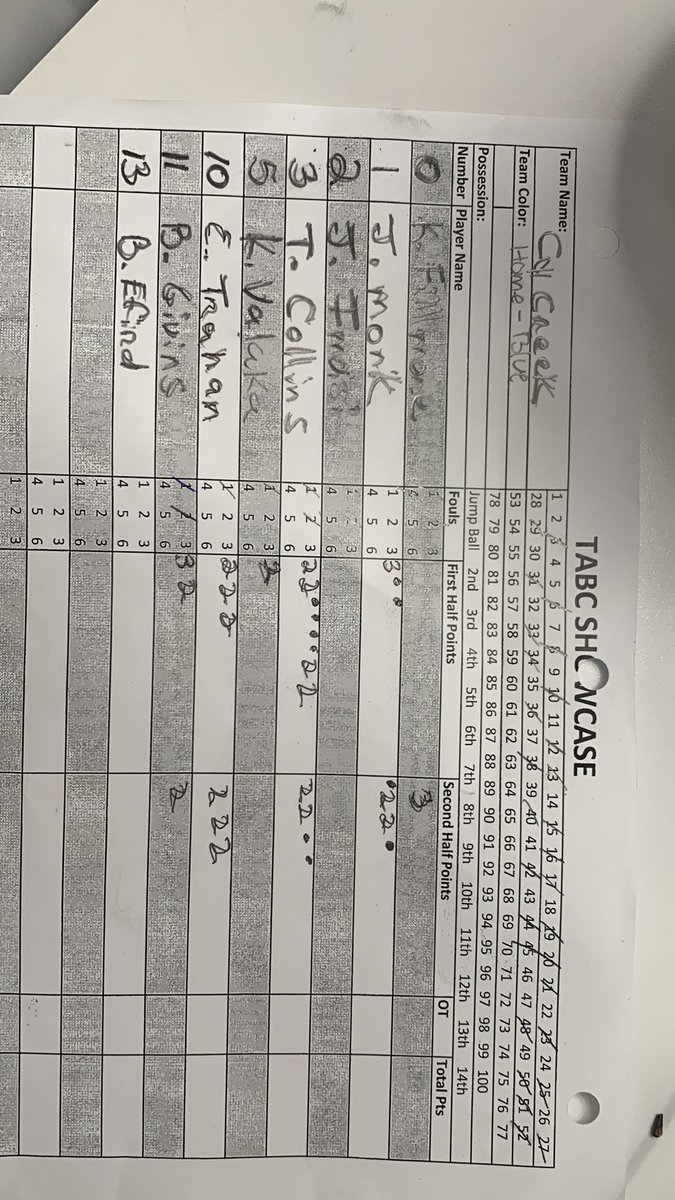 TABC SHOWCASE
Team Name: Coll Creek
1 2 3 4 5 6 7 8 9 10 11 12 13 14 15 16 17 18 19 20 21 22 23 24 25 26 27
28 29 30 31 32 33 34 35 36 37 38 39 40 41 42 43 44 45 46 47 48 49 50 51 52
Team Color: Home-Blue
53 54 55 56 57 58 59 60 61 62 63 64 65 66 67 68 69 70 71 72 73 74 75 76 77
78 79 80 81 82 83 84 85 86 87 88 89 90 91 92 93 94 95 96 97 98 99 100
Possession: Jump Ball 2nd 3rd 4th 5th 6th 7th 8th 9th 10th 11th 12th 13th 14th
Number Player Name Fouls First Half Points Second Half Points OT Total Pts
0 K. Fillmore 1 2 3 3
4 5 6
1 J. Monk 1 2 3 3•• •22•
4 5 6
2 J. 1 2 3
4 5 6
3 T. Collins 1 2 3 22••••22 22••
4 5 6
5 K. Valuka 1 2 3 2
4 5 6
10 E. Trahan 1 2 3 222 222
4 5 6
11 B. Givins 1 2 3 32 2
4 5 6
13 B. Efird 1 2 3
4 5 6
1 2 3
4 5 6
1 2 3
4 5 6
1 2 3